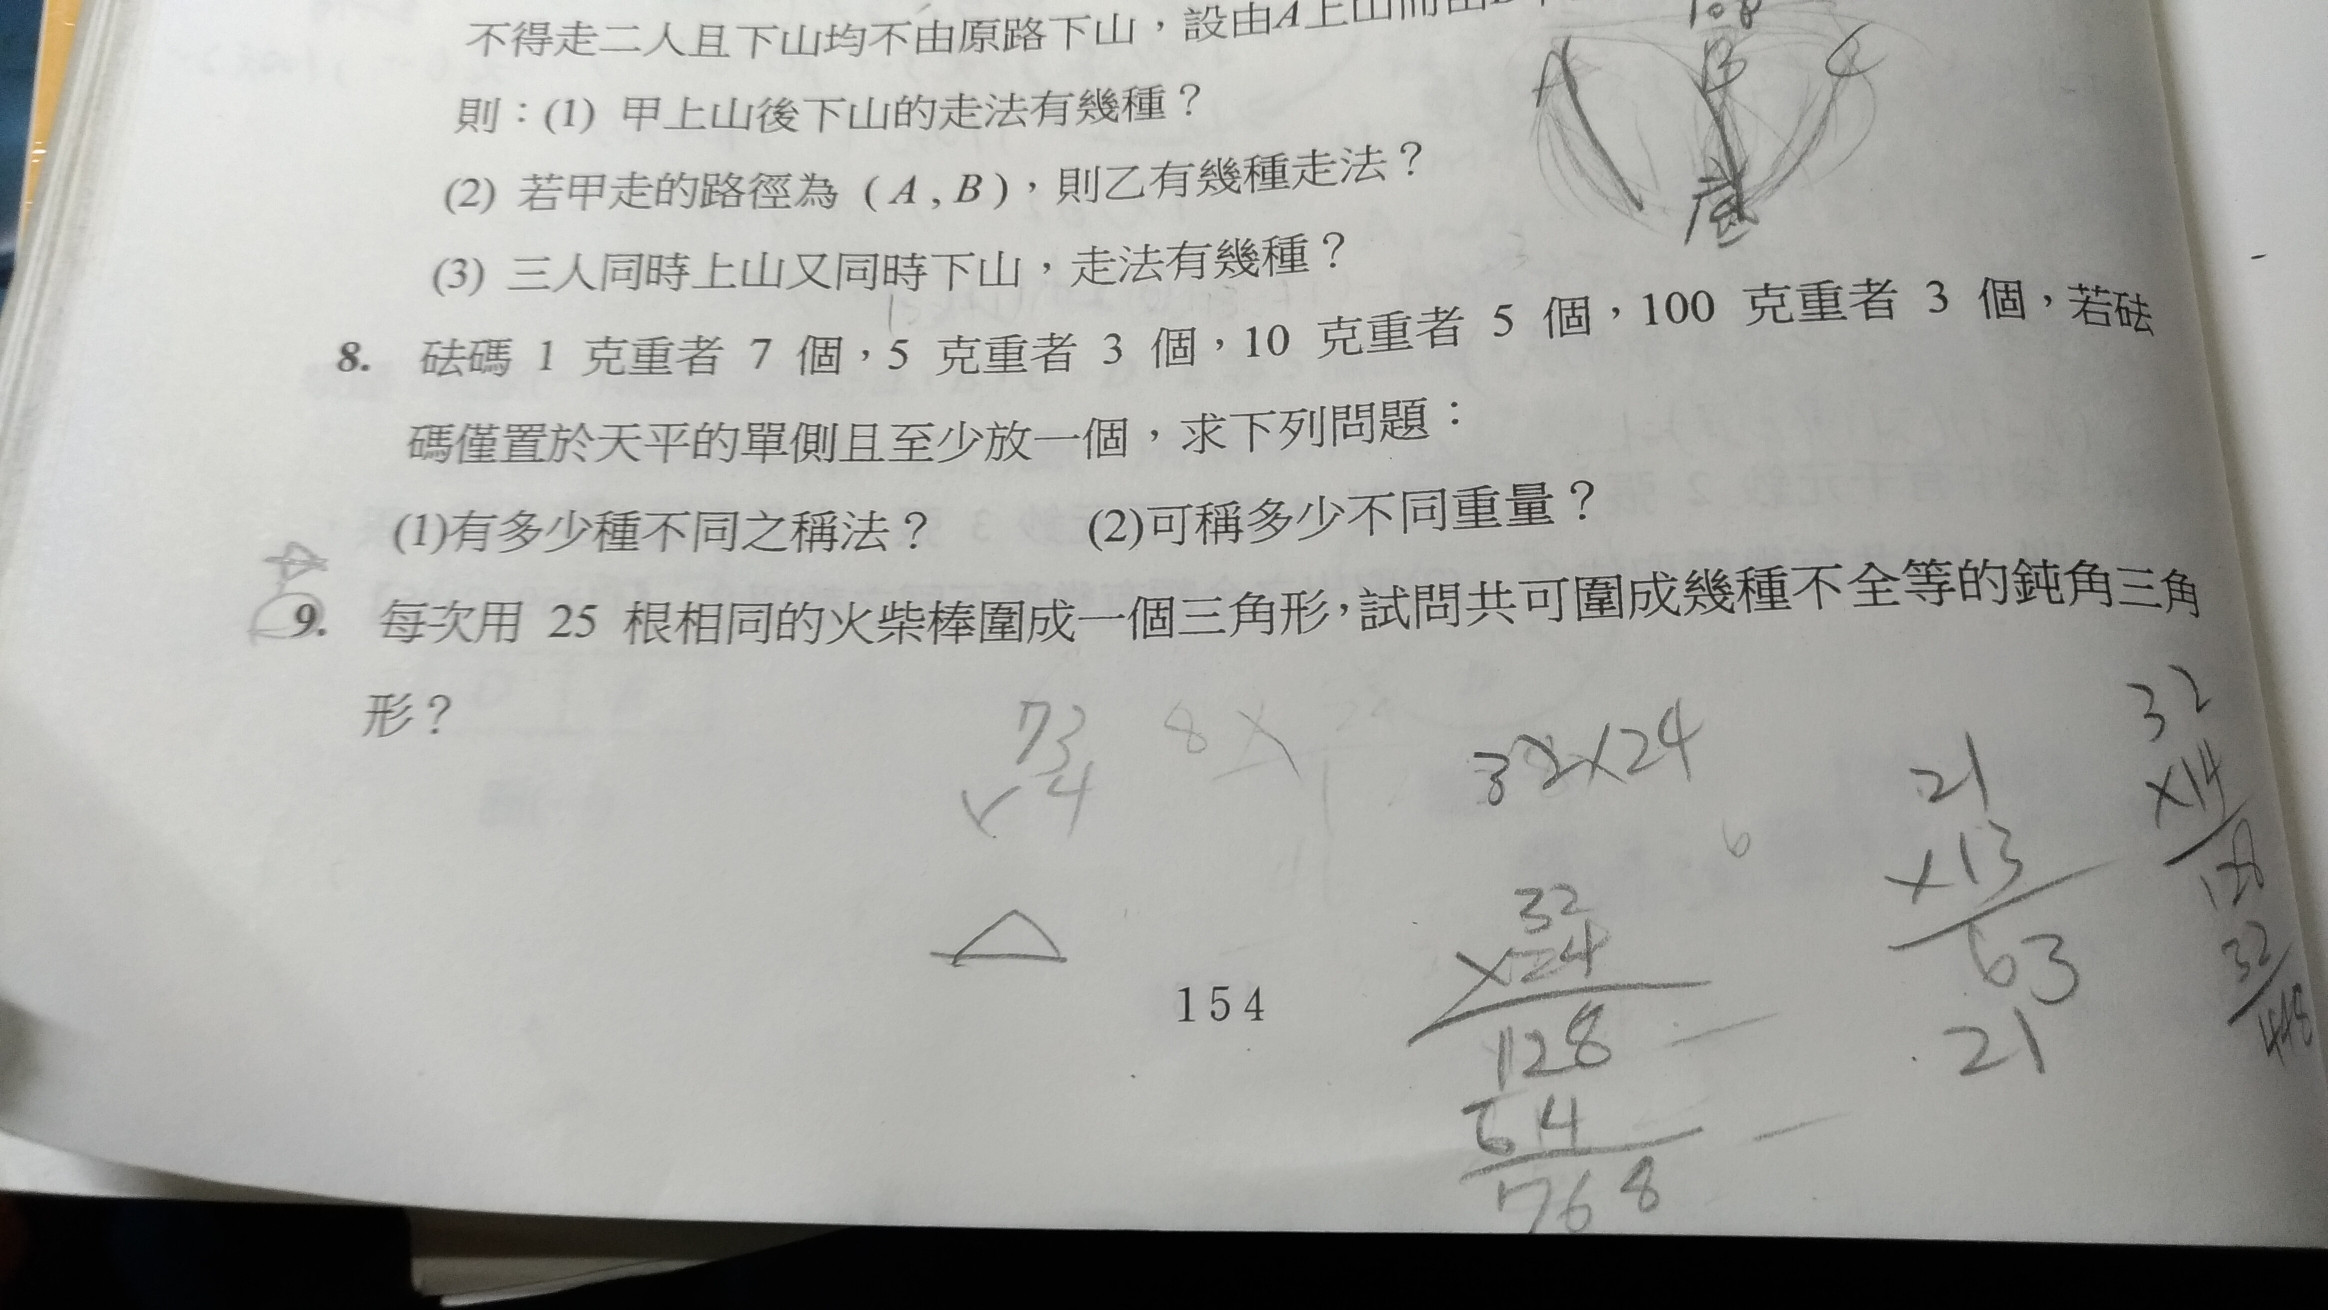 不得走二人且下山均不由原路下山，設由A上山而由
108
A B C
底
則：(1) 甲上山後下山的走法有幾種？
(2) 若甲走的路徑為 (A,B)，則乙有幾種走法？
(3) 三人同時上山又同時下山，走法有幾種？
8. 砝碼 1 克重者 7 個，5 克重者 3 個，10 克重者 5 個，100 克重者 3 個，若砝
碼僅置於天平的單側且至少放一個，求下列問題：
(1)有多少種不同之稱法？ (2)可稱多少不同重量？
9. 每次用 25 根相同的火柴棒圍成一個三角形，試問共可圍成幾種不全等的鈍角三角
形？
73
×4
8×
32×24
6
32
×24
128
64
768
21
×13
63
21
32
×14
128
32
448
154